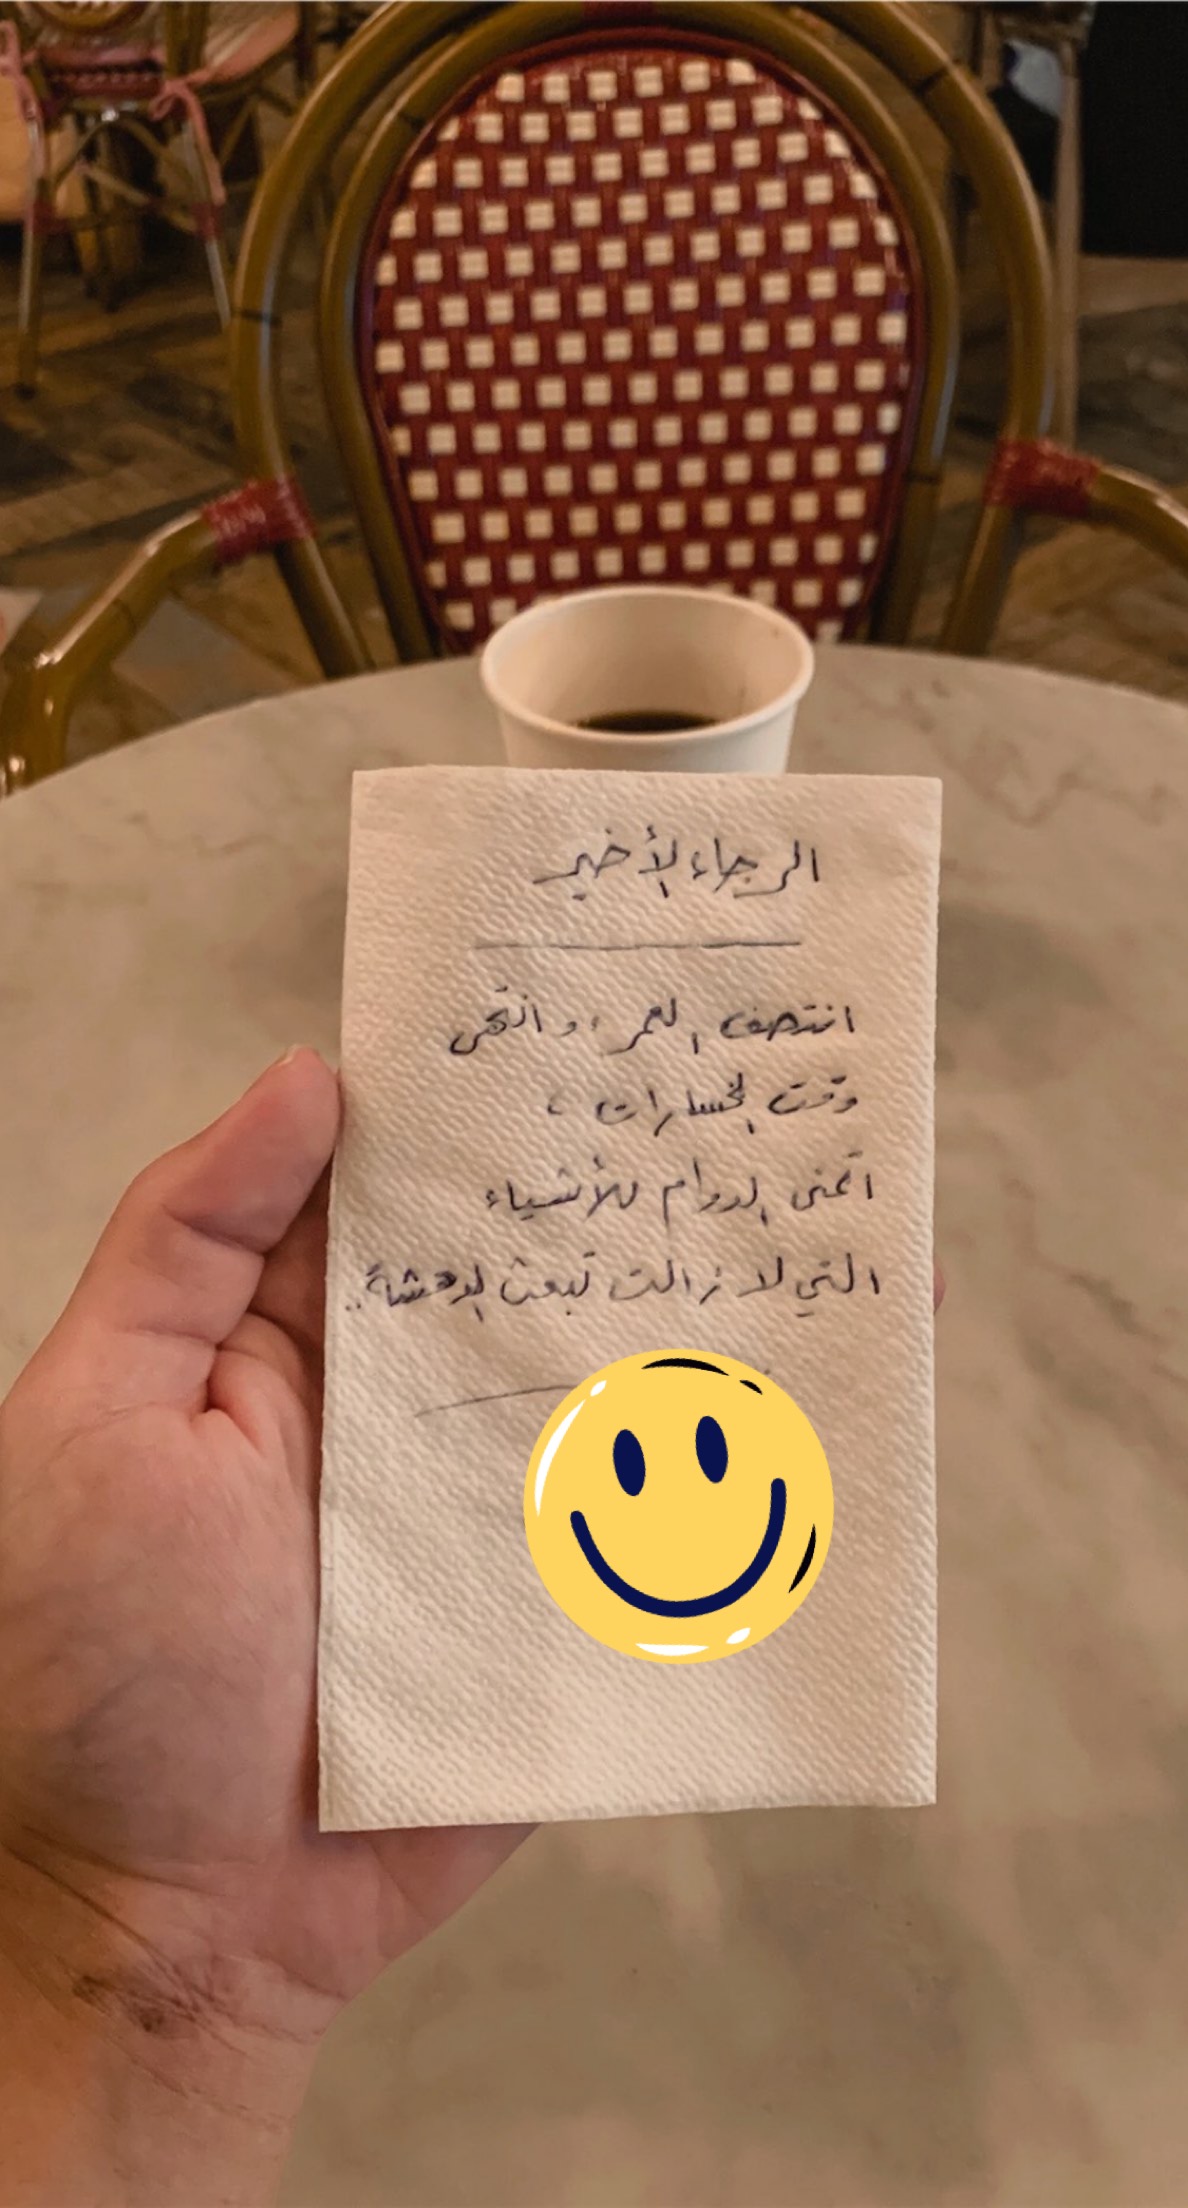 الرجاء الأخير
انتصف العمر، وانتهى
وقت الخسارات،
اتمنى الدوام للأشياء
التي لا زالت تبعث الدهشة..